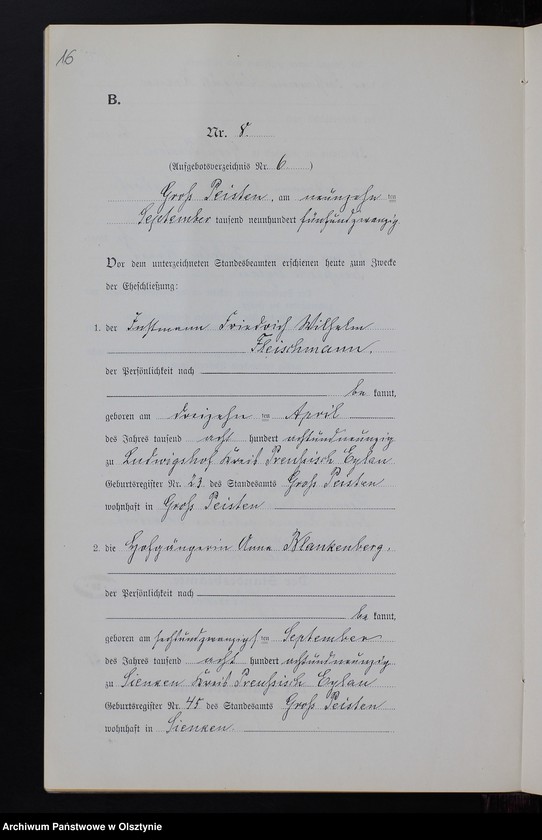 16
B.
Nr. 8.
(Aufgebotsverzeichnis Nr. 6 )
Groß Peisten, am neunzehn ten
September tausend neunhundert fünfundzwanzig.
Vor dem unterzeichneten Standesbeamten erschienen heute zum Zwecke
der Eheschließung:
1. der Instmann Friedrich Wilhelm
Fleischmann,
der Persönlichkeit nach
be kannt,
geboren am dreizehn ten April
des Jahres tausend acht hundert achtundneunzig
zu Ludwigshof Kreis Preußisch Eylau
Geburtsregister Nr. 23 des Standesamts Groß Peisten
wohnhaft in Groß Peisten
2. die Hofgängerin Anna Blankenberg,
der Persönlichkeit nach
be kannt,
geboren am sechsundzwanzigst ten September
des Jahres tausend acht hundert achtundneunzig
zu Sienken Kreis Preußisch Eylau
Geburtsregister Nr. 45 des Standesamts Groß Peisten
wohnhaft in Sienken.
Archiwum Państwowe w Olsztynie